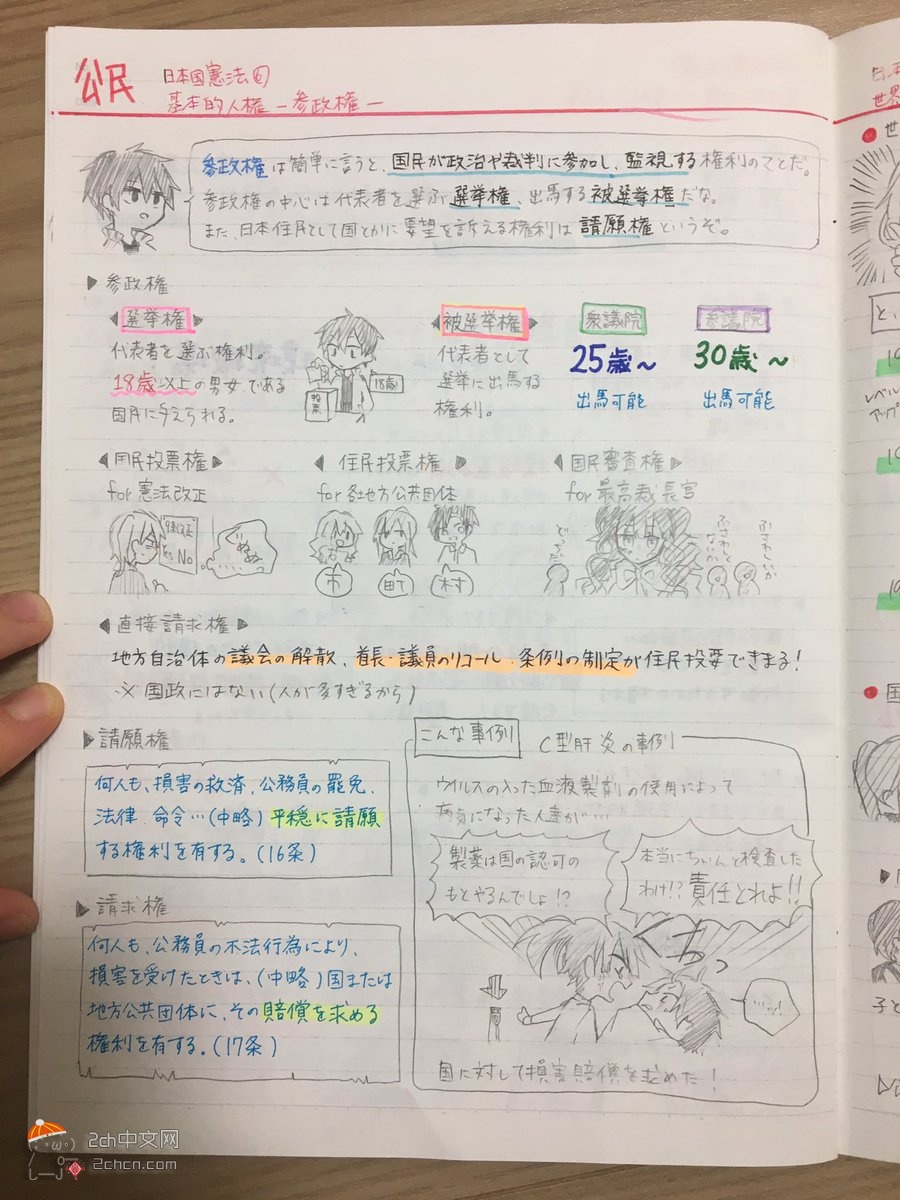 公民
日本国憲法⑥
基本的人権 ー参政権ー
参政権は簡単に言うと、国民が政治や裁判に参加し、監視する権利のことだ。
参政権の中心は代表者を選ぶ選挙権、出馬する被選挙権だな。
また、日本住民として国とかに要望を訴える権利は請願権というぞ。
▶参政権
◀選挙権▶
代表者を選ぶ権利。
18歳以上の男女である
国民に与えられる。
投票
18歳!
◀被選挙権▶
代表者として
選挙に出馬する
権利。
衆議院
25歳〜
出馬可能
参議院
30歳〜
出馬可能
◀国民投票権▶
for 憲法改正
No
◀住民投票権▶
for 各地方公共団体
市
町
村
◀国民審査権▶
for 最高裁長官
どっちだ
ふさわしくないか
ふさわしいか
◀直接請求権▶
地方自治体の議会の解散、首長・議員のリコール・条例の制定が住民投票できまる!
※国政にはない(人が多すぎるから)
▶請願権
何人も、損害の救済、公務員の罷免、
法律、命令…(中略)平穏に請願
する権利を有する。(16条)
▶請求権
何人も、公務員の不法行為により、
損害を受けたときは、(中略)国または
地方公共団体に、その賠償を求める
権利を有する。(17条)
こんな事例
C型肝炎の事例
ウイルスの入った血液製剤の使用によって
病気になった人達が…
製薬は国の認可の
もとやるんでしょ!?
本当にちゃんと検査した
わけ!?責任とれよ!!
くっ
…ッ!
国
国に対して損害賠償を求めた!
2ch中文网
2chcn.com